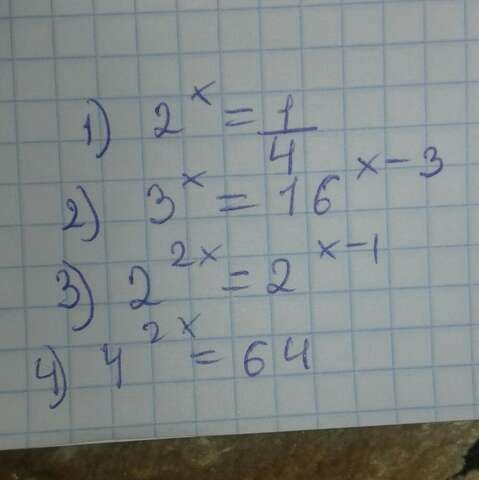 1) 2^x = 1/4
2) 3^x = 16^x-3
3) 2^2x = 2^x-1
4) 4^2x = 64